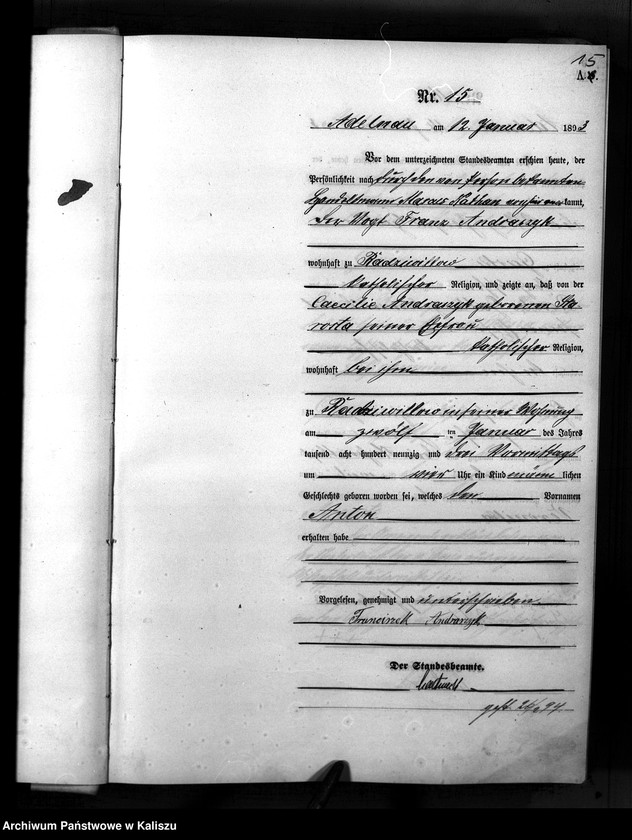 15
A
Nr. 15
Adelnau am 12. Januar 1893
Vor dem unterzeichneten Standesbeamten erschien heute, der
Persönlichkeit nach durch den von Person bekannten
Handelsmann Marcus Nathan kannt,
der Vogt Franz Andraszyk
wohnhaft zu Radziwillow
katholischer Religion, und zeigte an, daß von der
Caecilie Andraszyk geborenen Sta
rosta seiner Ehefrau
katholischer Religion,
wohnhaft bei ihm
zu Radziwillow in seiner Wohnung
am zwölf ten Januar des Jahres
tausend acht hundert neunzig und drei Vormittags
um vier Uhr ein Kind männ lichen
Geschlechts geboren worden sei, welches den Vornamen
Anton
erhalten habe
Vorgelesen, genehmigt und unterschrieben.
Franciszek Andraszyk
Der Standesbeamte.
Archiwum Państwowe w Kaliszu